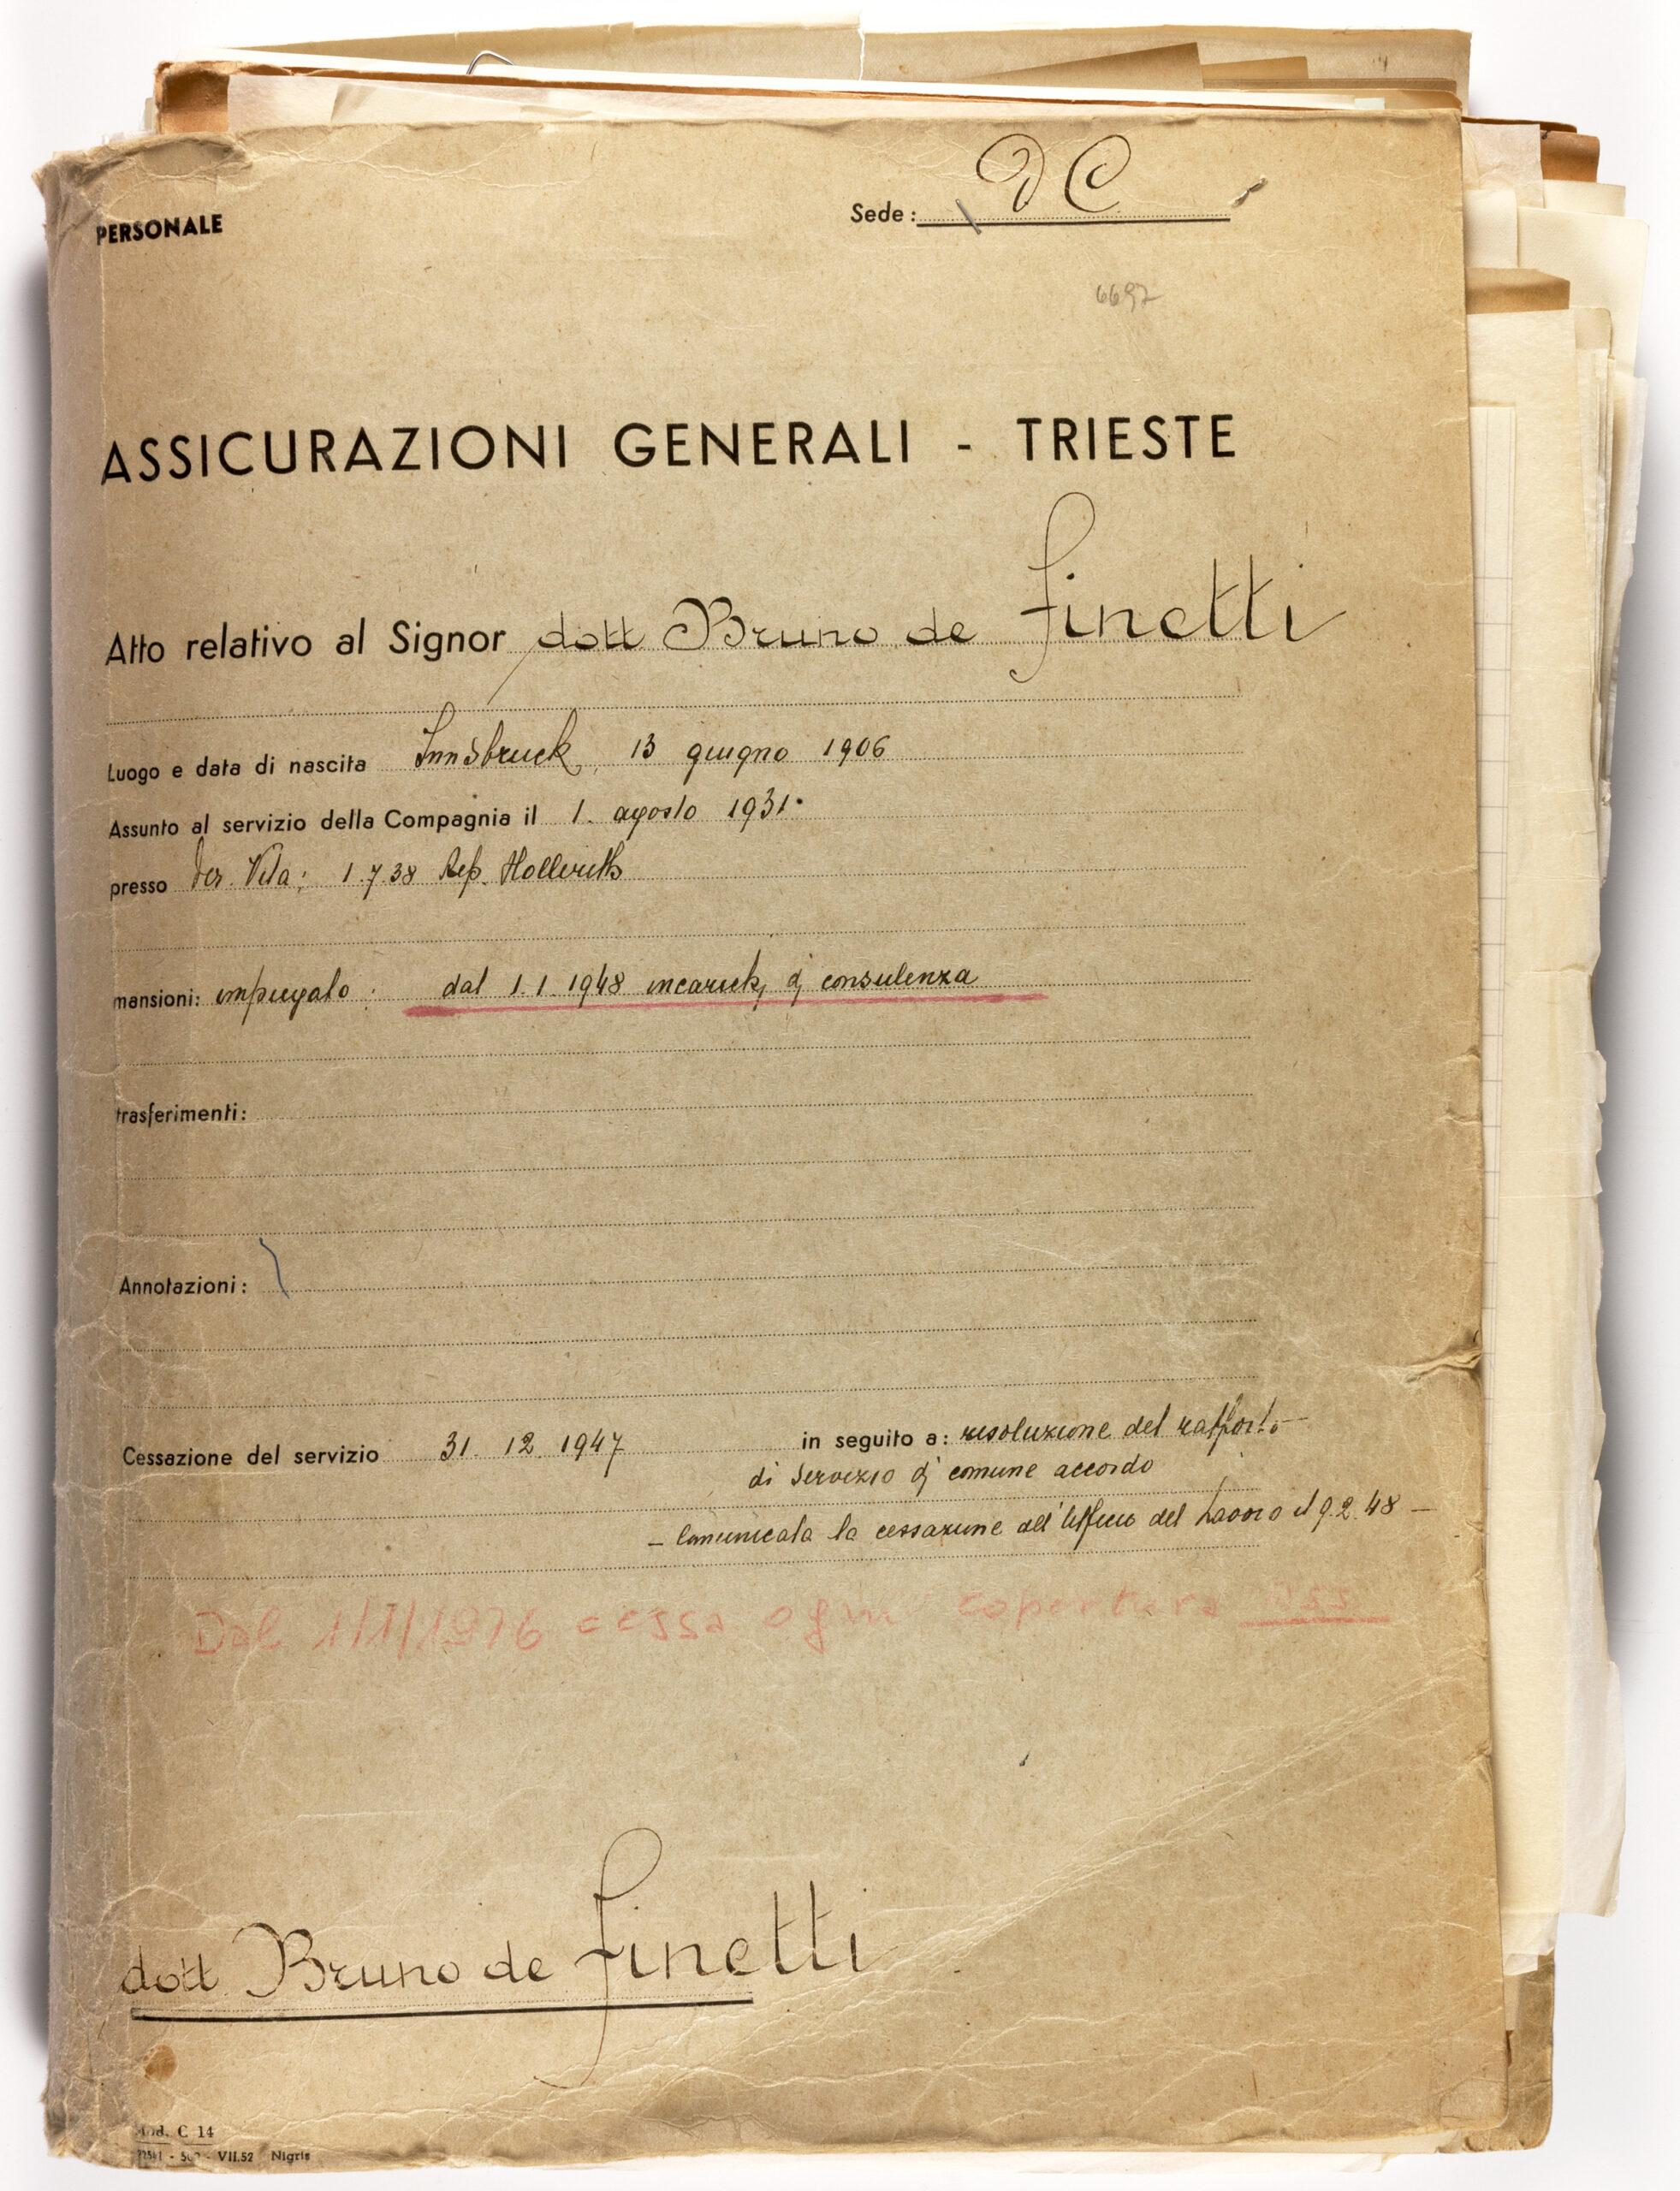 PERSONALE
Sede: DC
6697
ASSICURAZIONI GENERALI - TRIESTE
Atto relativo al Signor dott Bruno de Finetti
Luogo e data di nascita Innsbruck, 13 giugno 1906
Assunto al servizio della Compagnia il 1. agosto 1931.
presso Ser. Vita; 1.7.38 Rep. Hollerith
mansioni: impiegato: dal 1.1.1948 di consulenza
trasferimenti:
Annotazioni:
Cessazione del servizio 31.12.1947 in seguito a: resoluzione del rapporto
di servizio di comune accordo
- Comunicata la cessazione all'Ufficio del Lavoro il 9.2.48 -
Dal 1/1/1976 cessa ogni copertura ass
dott Bruno de Finetti
Mod. C 14
VII.52 Nigris